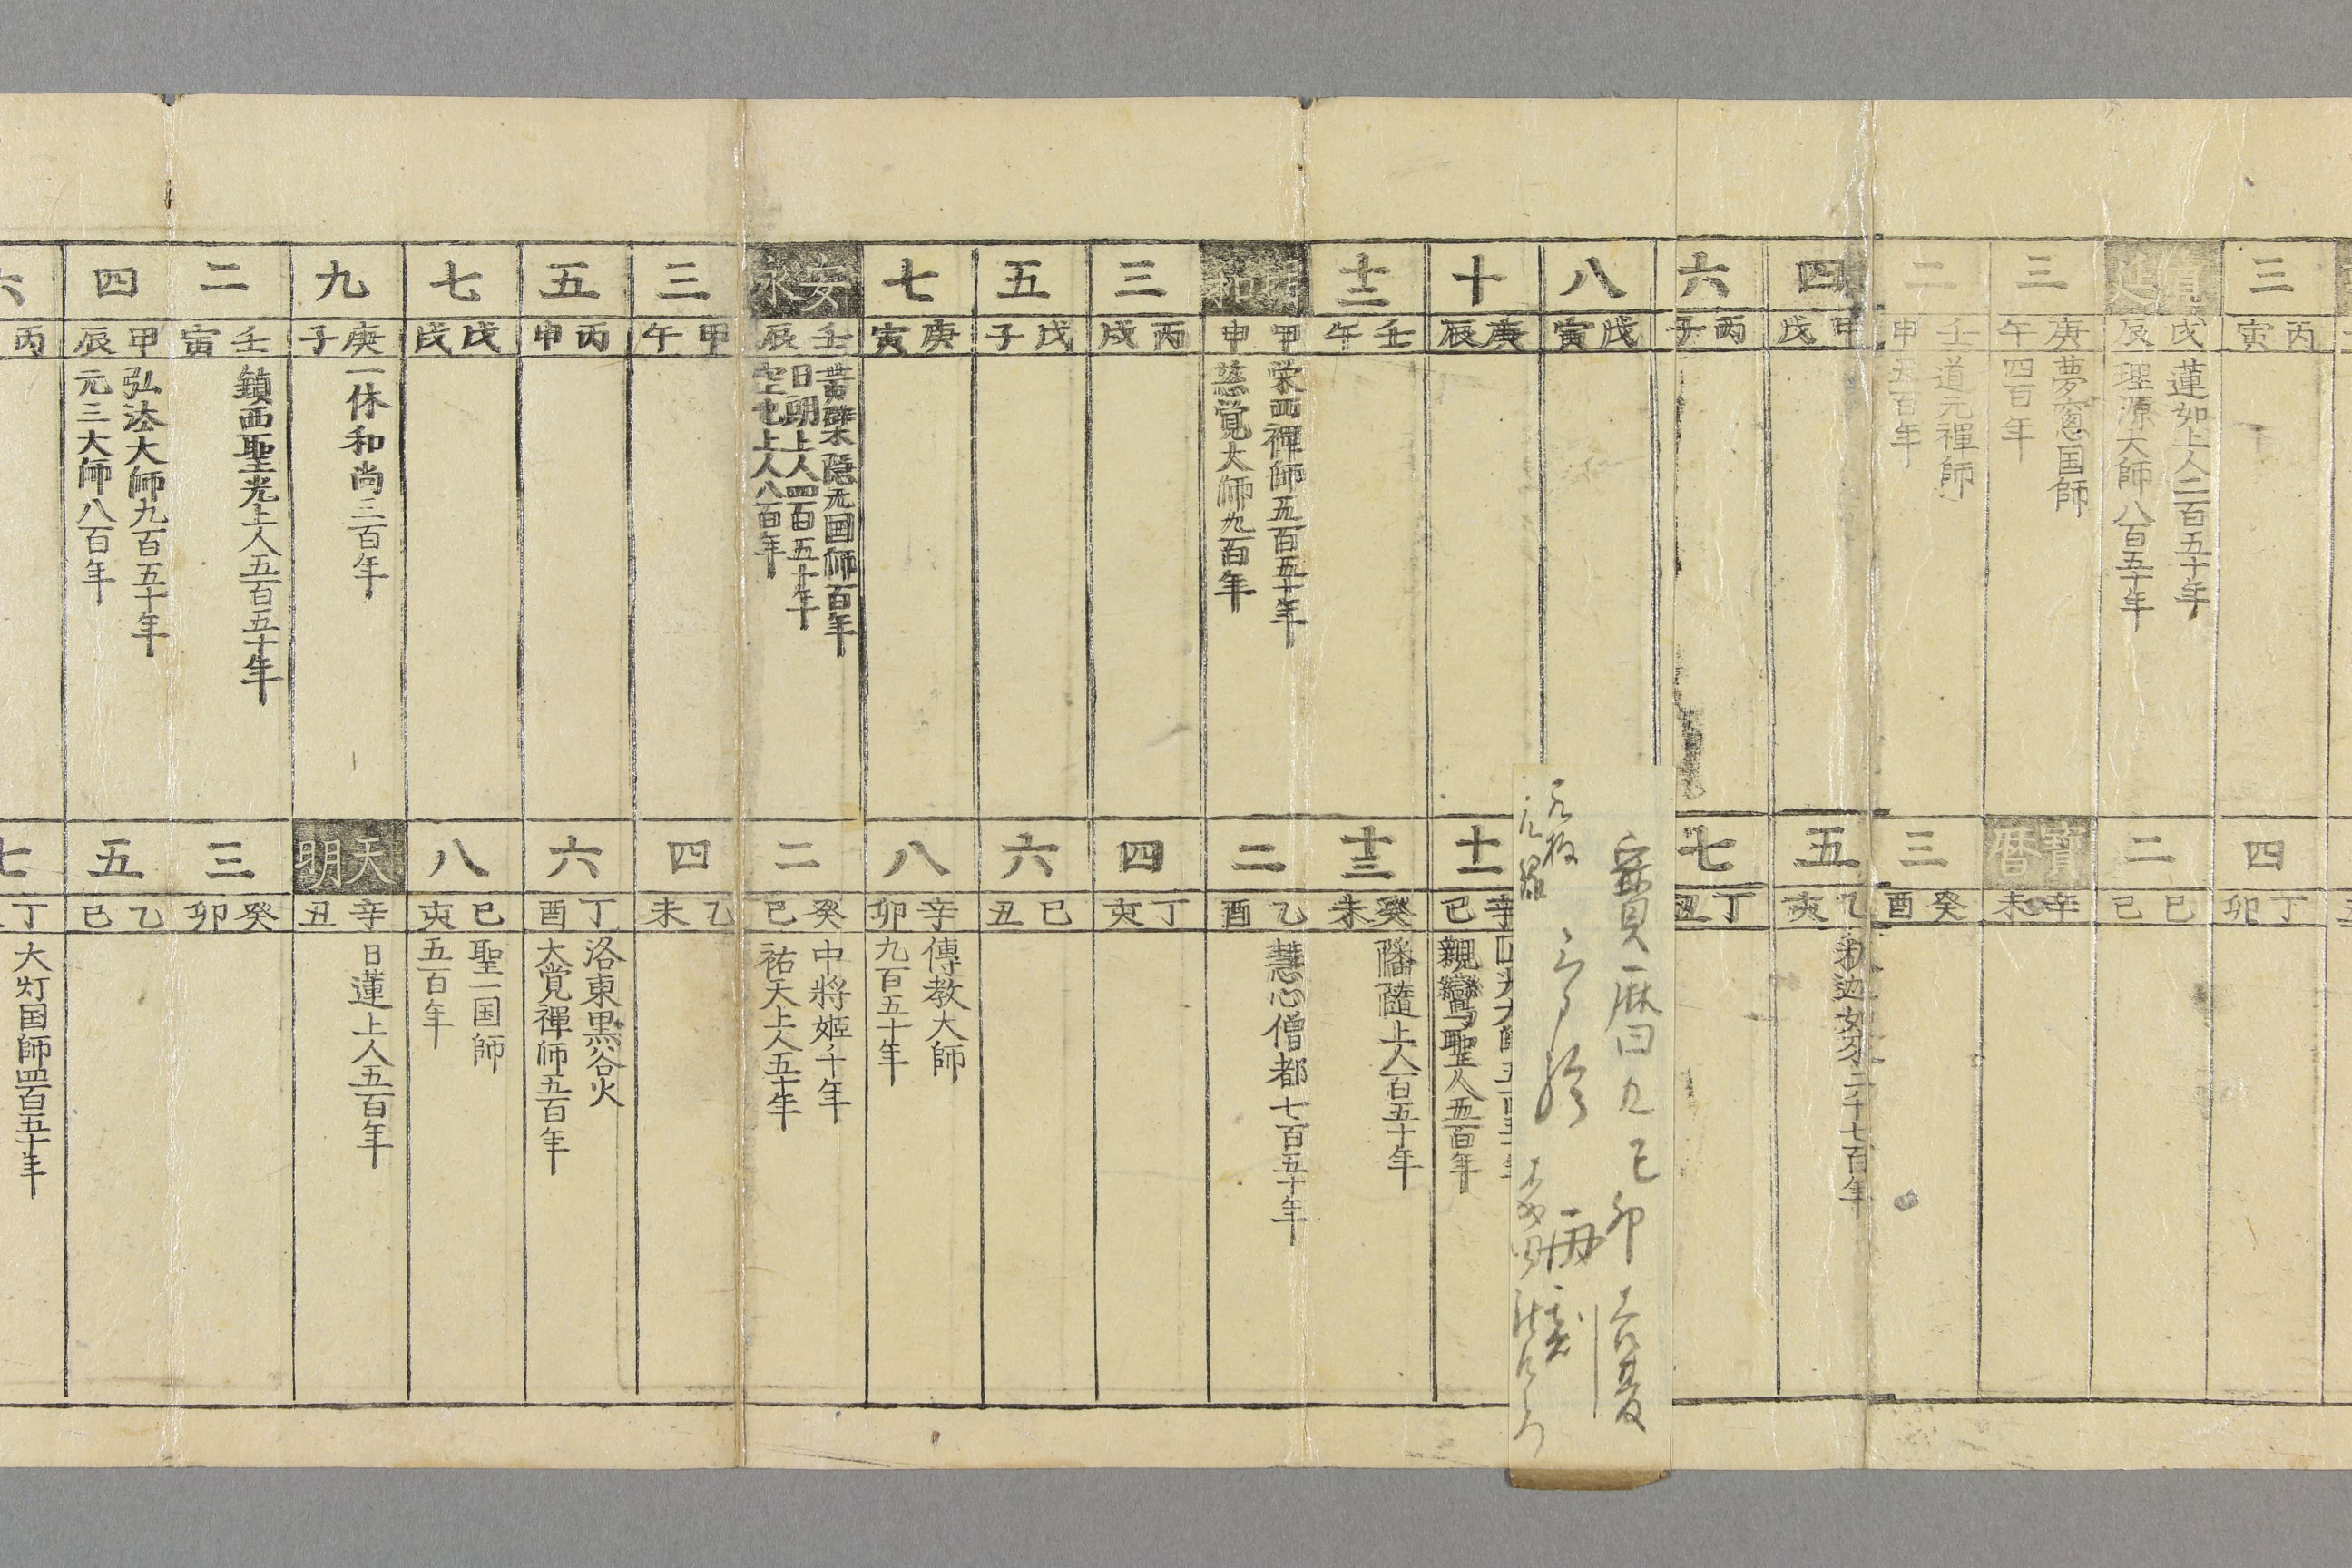 三
丙寅
四
丁卯
寛延
戊辰
蓮如上人二百五十年
理源大師八百五十年
二
己巳
三
庚午
夢窓国師
四百年
寳暦
辛未
二
壬申
道元禅師
五百年
三
癸酉
四
甲戌
五
乙亥
釈迦如来二千七百年
六
丙子
七
丁丑
八
戊寅
寳暦九己卯
再刻
十
庚辰
十一
辛巳
親鸞聖人五百年
十二
壬午
十三
癸未
幡随上人百五十年
明和
甲申
栄西禅師五百五十年
慈覚大師九百年
二
乙酉
慧心僧都七百五十年
三
丙戌
四
丁亥
五
戊子
六
己丑
七
庚寅
八
辛卯
傳教大師
九百五十年
安永
壬辰
黄檗隠元国師百年
日朗上人四百五十年
空也上人八百年
二
癸巳
中将姫千年
祐天上人五十年
三
甲午
四
乙未
五
丙申
六
丁酉
洛東黒谷火
大覚禅師五百年
七
戊戌
八
己亥
聖一国師
五百年
九
庚子
一休和尚三百年
天明
辛丑
日蓮上人五百年
二
壬寅
鎮西聖光上人五百五十年
三
癸卯
四
甲辰
弘法大師九百五十年
元三大師八百年
五
乙巳
六
丙
七
丁
大灯国師四百五十年